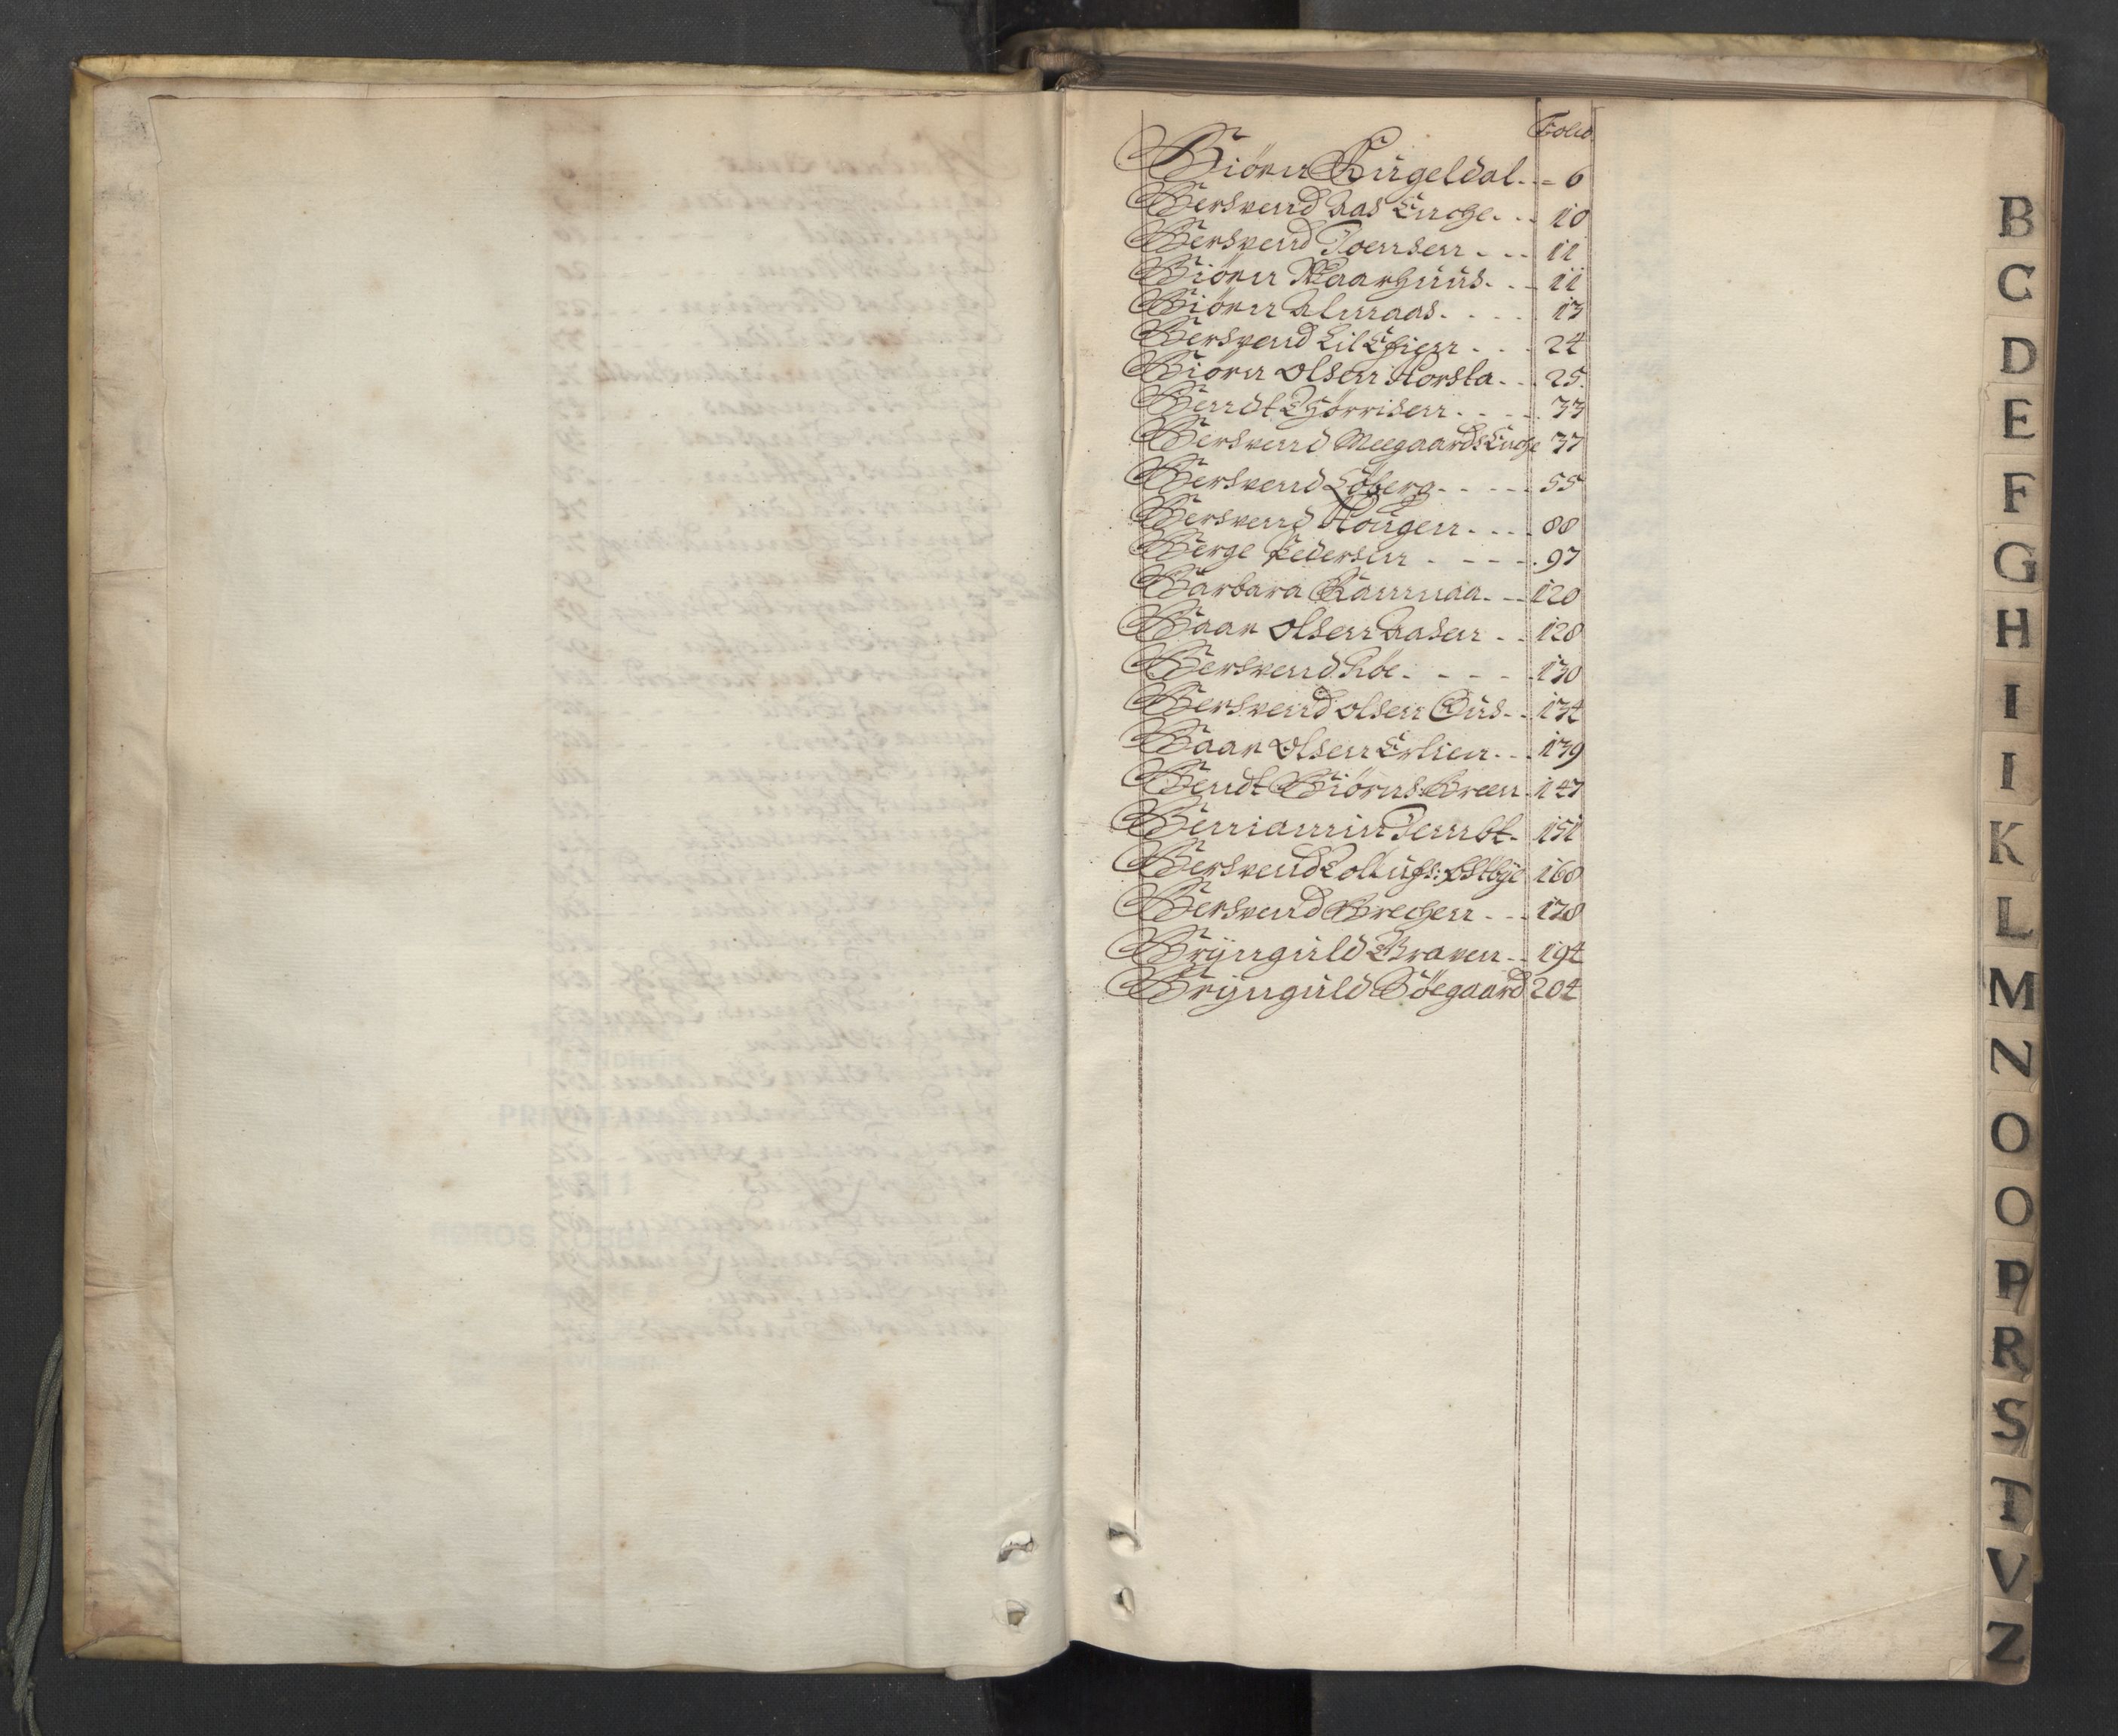 Folio
Biörn Kugeldal - - 6
Bersvend Aas Enche - - 10
Bersvend Joensen - - - 11
Biörn Aaarhuus - - 11
Biörn Almaas - - - - 13
Bersvend Lil Ehien - - - 24
Biörn Olsen Horsta - - 25
Berndt Giörrisen - - - - 33
Bersvend Meegaards Enche 37
Bersvend Löberg - - - - - 55
Bersvend Hougen - - - - 88
Berge Pedersen - - - - 97
Barbara Rammaa - - 120
Baar Olsen Aasen - - 128
Bersvend Röe - - - - - 130
Bersvend Olsen Duus - - 134
Baar Olsen Erlien - - 139
Bendt Biörns: Breen - 147
Beniamin Jembt - 151
Bersvend Ollufs: Östbye 168
Bersvend Brechen - - - 178
Brynguld Graven - - 194
Brynguld Söegaard 204
B
C
D
E
F
G
H
I
I
K
L
M
N
O
O
P
R
S
T
V
Z